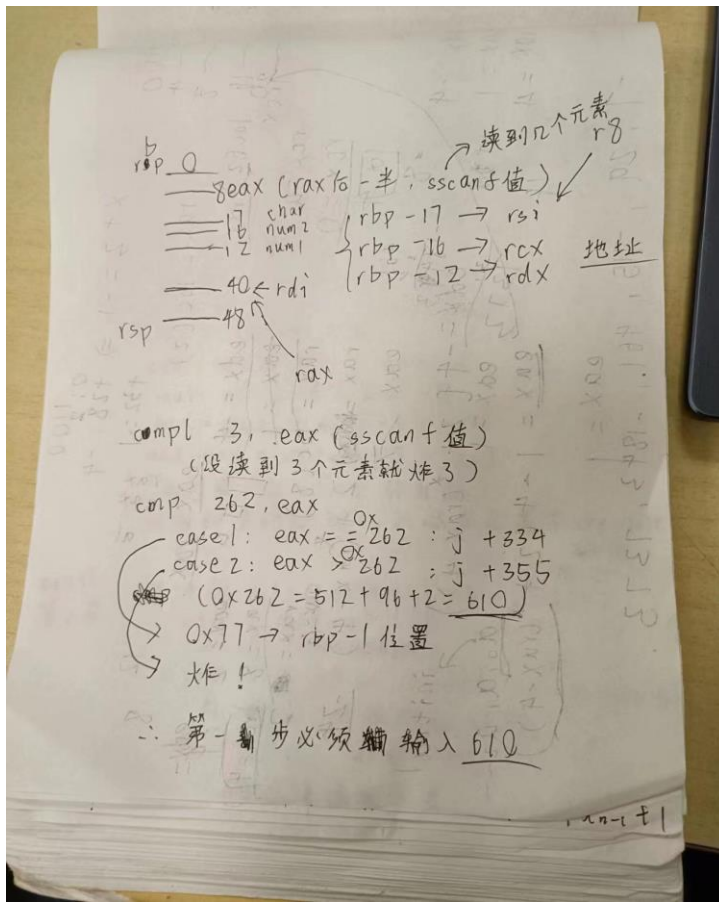 读到几个元素
rbp 0
r8
8eax (rax后一半, sscanf值)
17 char
16 num2
12 num1
rbp -17 → rsi
rbp -16 → rcx
rbp -12 → rdx
地址
40 ← rdi
rsp 48
rax
cmpl 3, eax (sscanf值)
(没读到3个元素就炸了)
cmp 262, eax
case1: eax == 0x262 : j +334
case2: eax > 0x262 : j +355
(0x262 = 512 + 96 + 2 = 610)
0x77 → rbp-1 位置
炸!
∴ 第一步必须输入 610